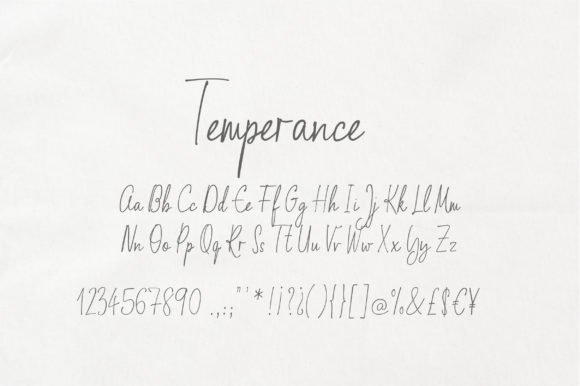 Temperance
Aa Bb Cc Dd Ee Ff Gg Hh Ii Jj Kk Ll Mm
Nn Oo Pp Qq Rr Ss Tt Uu Vv Ww Xx Yy Zz
1234567890 .,:; "' * !¡?¿(){}[]@%&£$€¥